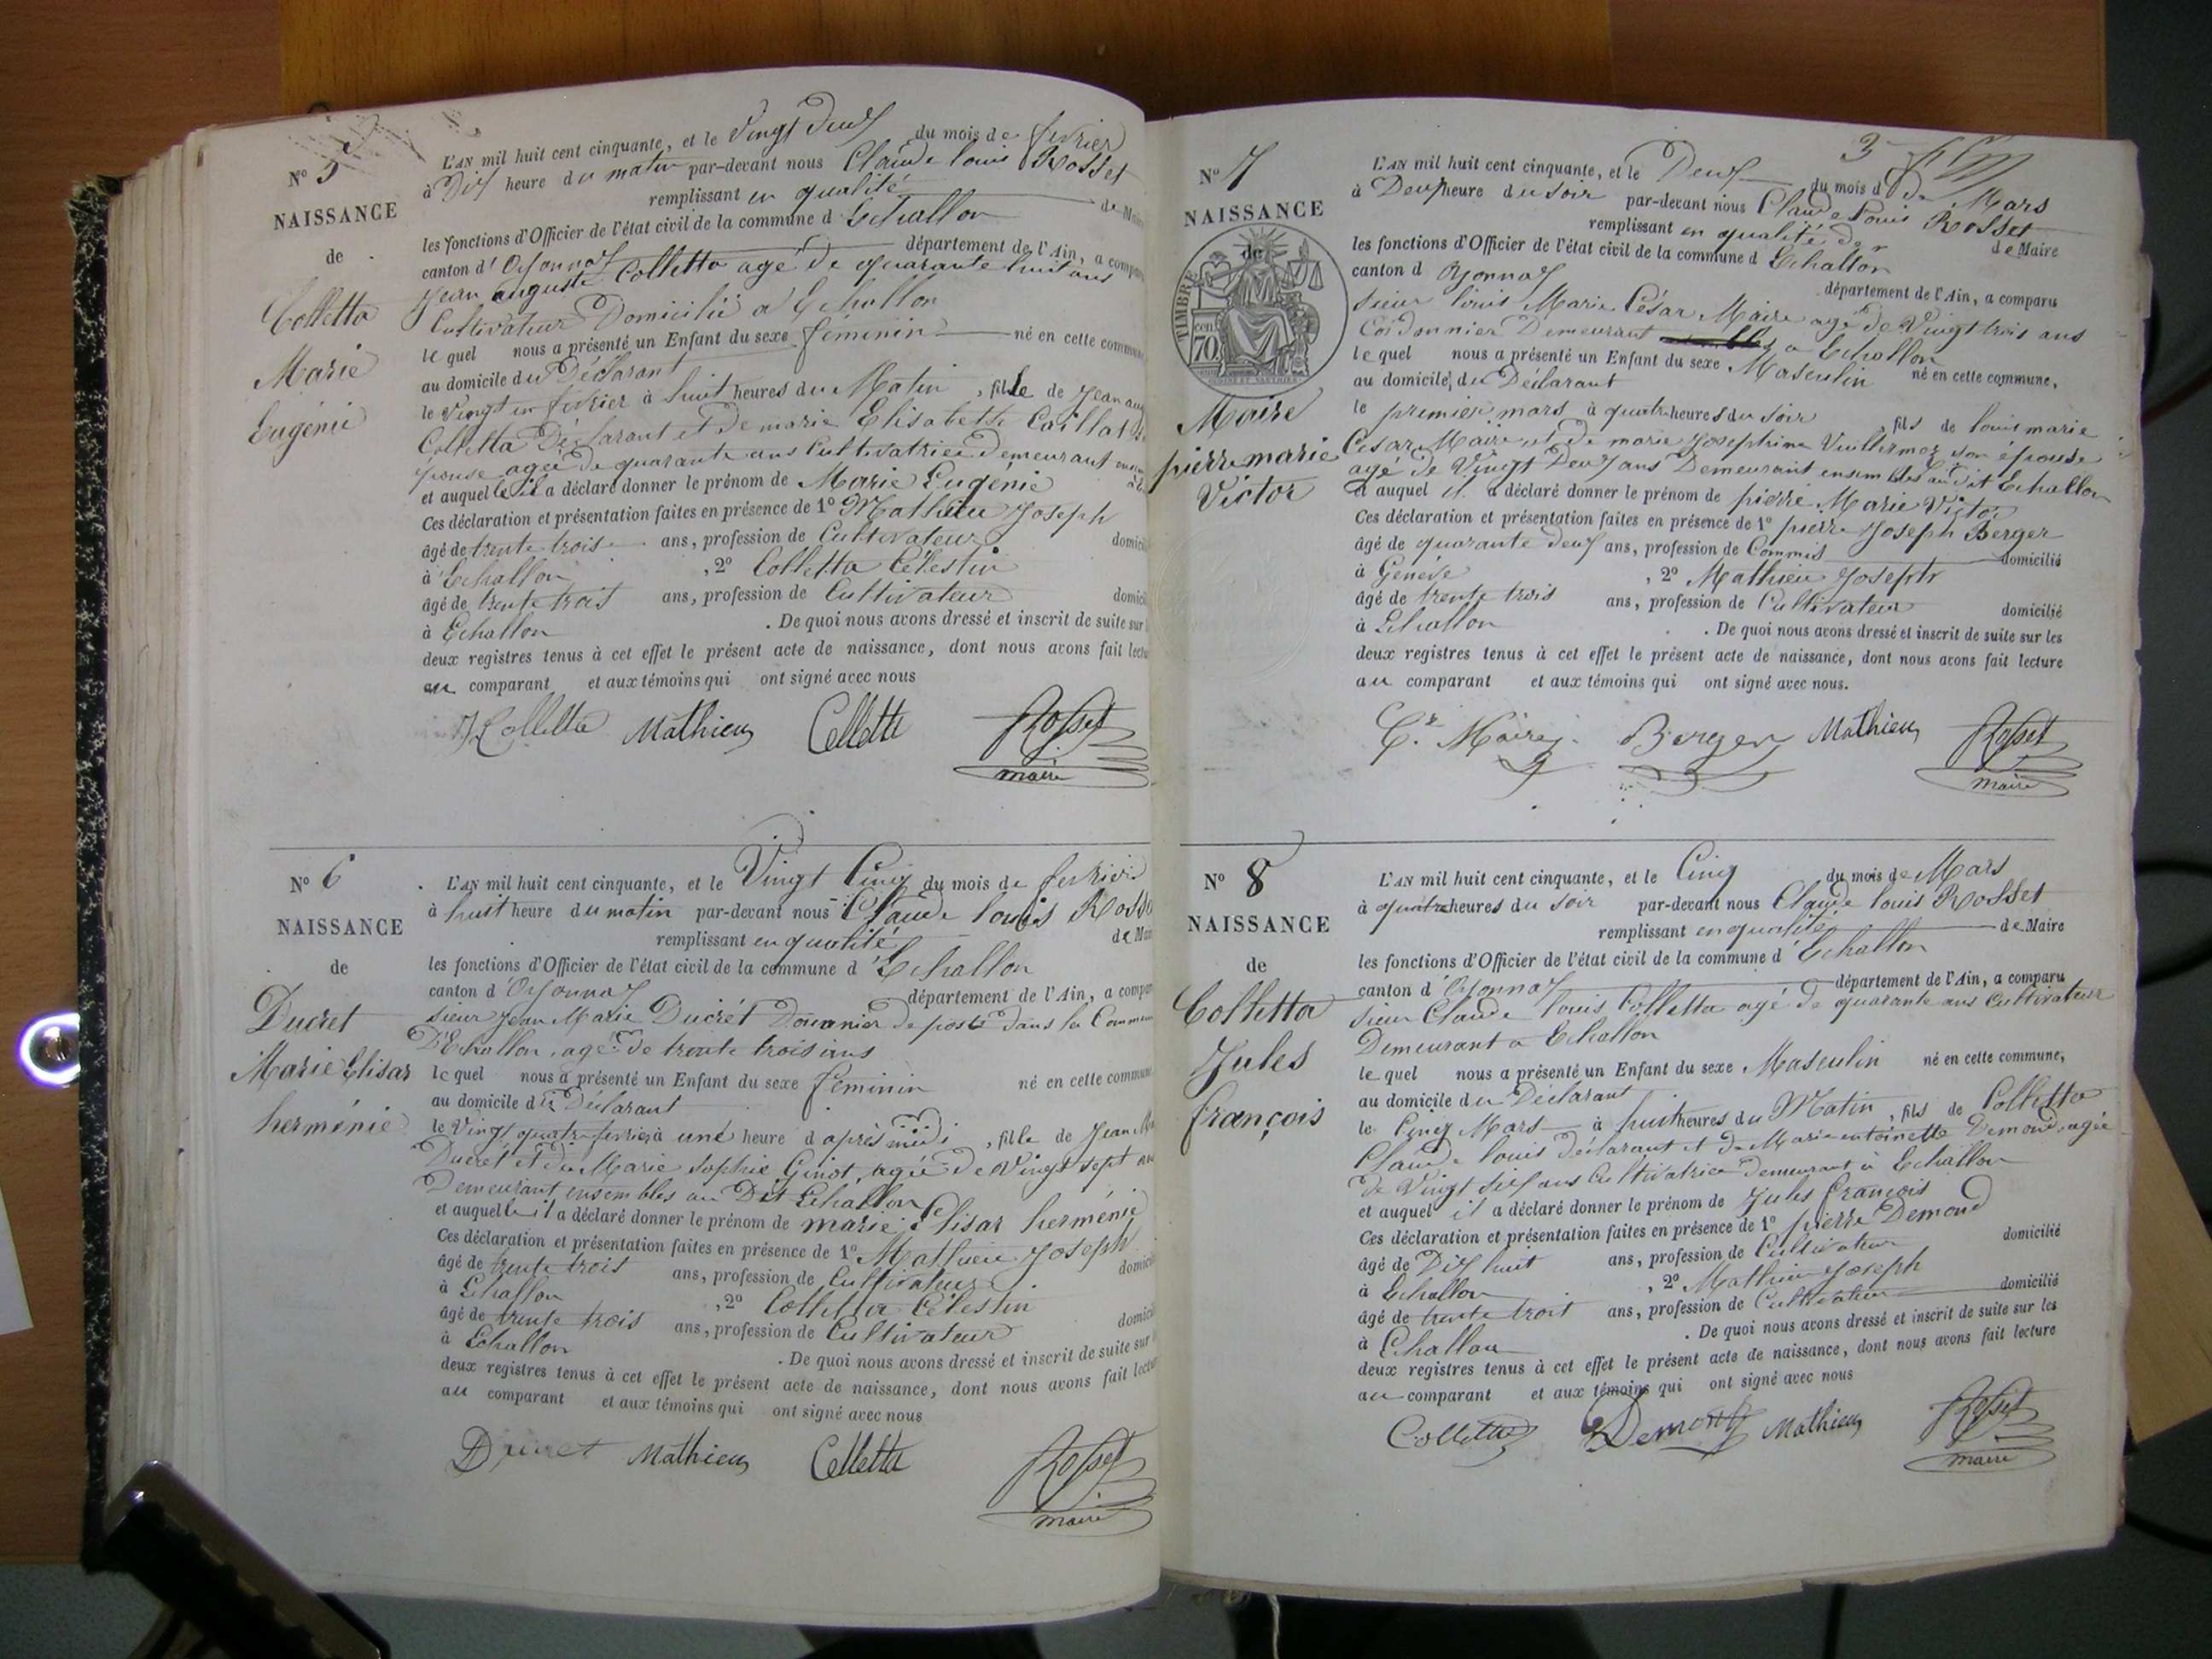 N° 5
NAISSANCE
de
Colletta
Marie
Eugénie
L'AN mil huit cent cinquante, et le Vingt Deux du mois de fevrier
à Dix heure du matin par-devant nous Claude louis Rosset
remplissant en qualité de Mai
les fonctions d'Officier de l'état civil de la commune d'Echallon
canton d'Oyonnax département de l'Ain, a compa
Jean auguste Colletta agé de quarante huit ans
Cultivateur Domicilié a Echallon
le quel nous a présenté un Enfant du sexe féminin né en cette commune
au domicile du Déclarant
le Vingt un fevrier à huit heures du Matin, fille de Jean au
Colletta Déclarant et de marie Elisabeth Caillat
épouse agée de quarante ans Cultivatrice demeurant
et auquel il a déclaré donner le prénom de Marie Eugénie
Ces déclaration et présentation faites en présence de 1° Mathieu Joseph
âgé de trente trois ans, profession de Cultivateur domici
à Echallon, 2° Colletta Célestin
âgé de trente trois ans, profession de Cultivateur domici
à Echallon. De quoi nous avons dressé et inscrit de suite sur
deux registres tenus à cet effet le présent acte de naissance, dont nous avons fait lectu
au comparant et aux témoins qui ont signé avec nous
Colletta Mathieu Colletta Rosset
maire
N° 6
NAISSANCE
de
Ducret
Marie Elisar
herménie
L'AN mil huit cent cinquante, et le Vingt Cinq du mois de fevrier
à huit heure du matin par-devant nous Claude louis Rosse
remplissant en qualité de Mai
les fonctions d'Officier de l'état civil de la commune d'Echallon
canton d'Oyonnax département de l'Ain, a compa
sieur Jean Marie Ducret Douanier de poste dans la Commun
D'Echallon, agé de trente trois ans
le quel nous a présenté un Enfant du sexe féminin né en cette commun
au domicile du Déclarant
le Vingt quatre fevrier à une heure d'après midi, fille de Jean M
Ducret et de Marie Sophie Ginot, agée de Vingt sept an
Demeurant ensembles au Dit Echallon
et auquel il a déclaré donner le prénom de marie Elisar herménie
Ces déclaration et présentation faites en présence de 1° Mathieu Joseph
âgé de trente trois ans, profession de Cultivateur domici
à Echallon, 2° Colletta Célestin
âgé de trente trois ans, profession de Cultivateur domici
à Echallon. De quoi nous avons dressé et inscrit de suite sur
deux registres tenus à cet effet le présent acte de naissance, dont nous avons fait lectu
au comparant et aux témoins qui ont signé avec nous
Ducret Mathieu Colletta Rosset
maire
3
N° 7
NAISSANCE
de
TIMBRE
70
cent
Maire
pierre marie
Victor
L'AN mil huit cent cinquante, et le Deux du mois de Mars
à Deux heure du soir par-devant nous Claude Louis Rosset
remplissant en qualité de de Maire
les fonctions d'Officier de l'état civil de la commune d Echallon
canton d Oyonnax département de l'Ain, a comparu
sieur louis Marie César Maire agé de Vingt trois ans
Cordonnier Demeurant a Echallon
le quel nous a présenté un Enfant du sexe Masculin né en cette commune,
au domicile du Déclarant
le premier mars à quatre heures du soir, fils de louis marie
César Maire et de marie Josephine Vuillermoz son épouse
agé de Vingt Deux ans Demeurant ensembles au dit Echallon
et auquel il a déclaré donner le prénom de pierre Marie Victor
Ces déclaration et présentation faites en présence de 1° pierre Joseph Berger
âgé de quarante deux ans, profession de Commis domicilié
à Genève, 2° Mathieu Joseph
âgé de trente trois ans, profession de Cultivateur domicilié
à Echallon. De quoi nous avons dressé et inscrit de suite sur les
deux registres tenus à cet effet le présent acte de naissance, dont nous avons fait lecture
au comparant et aux témoins qui ont signé avec nous.
Cr. Maire Berger Mathieu Rosset
maire
N° 8
NAISSANCE
de
Colletta
Jules
françois
L'AN mil huit cent cinquante, et le Cinq du mois de Mars
à quatre heures du soir par-devant nous Claude louis Rosset
remplissant en qualité de Maire
les fonctions d'Officier de l'état civil de la commune d'Echallon
canton d'Oyonnax département de l'Ain, a comparu
sieur Claude louis Colletta agé de quarante ans cultivateur
Demeurant a Echallon
le quel nous a présenté un Enfant du sexe Masculin né en cette commune,
au domicile du Déclarant
le Cinq Mars à huit heures du Matin, fils de Colletta
Claude louis déclarant et de Marie antoinette Demond agée
de Vingt six ans Cultivatrice demeurant à Echallon
et auquel il a déclaré donner le prénom de Jules françois
Ces déclaration et présentation faites en présence de 1° pierre Demond
âgé de Dix huit ans, profession de Cultivateur domicilié
à Echallon, 2° Mathieu Joseph
âgé de trente trois ans, profession de Cultivateur domicilié
à Echallon. De quoi nous avons dressé et inscrit de suite sur les
deux registres tenus à cet effet le présent acte de naissance, dont nous avons fait lecture
au comparant et aux témoins qui ont signé avec nous
Colletta Demond Mathieu Rosset
maire